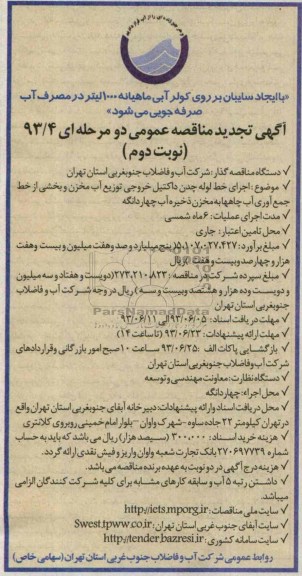 «باایجاد سایبان بر روی کولر آبی ماهیانه ۱۰۰۰لیتر در مصرف آب
صرفه جویی می شود»
آگهی تجدید مناقصه عمومی دو مرحله ای ۹۳/۴
(نوبت دوم)
✓ دستگاه مناقصه گذار: شرکت آب و فاضلاب جنوبغربی استان تهران
✓ موضوع: اجرای خط لوله چدن داکتیل خروجی توزیع آب مخزن و بخشی از خط
جمع آوری آب چاهها به مخزن ذخیره آب چهاردانگه
✓ مدت اجرای عملیات: ۶ ماه شمسی
✓ محل تامین اعتبار: جاری
✓ مبلغ برآورد: ۵،۱۰۷،۰۲۷،۴۲۷(پنج میلیارد و صد وهفت میلیون و بیست وهفت
هزار و چهارصد وبیست و هفت) ریال
✓ مبلغ سپرده شرکت در مناقصه: ۲۷۳،۲۱۰،۸۲۳(دویست و هفتاد و سه میلیون
و دویست وده هزار و هشتصد وبیست و سه) ریال در وجه شرکت آب و فاضلاب
جنوبغربی استان تهران
✓ مهلت دریافت اسناد: ۹۳/۰۶/۰۵ الی ۹۳/۰۶/۱۱
ParsNamadData
✓ مهلت ارائه پیشنهادات: ۹۳/۰۶/۲۳ (تا ساعت ۱۴)
✓ بازگشایی پاکات الف: ۹۳/۰۶/۲۵ ساعت ۱۰ صبح امور بازرگانی وقراردادهای
شرکت آب وفاضلاب جنوبغربی استان تهران
✓ دستگاه نظارت: معاونت مهندسی و توسعه
✓ محل اجراء: چهاردانگه
✓ محل دریافت اسناد وارائه پیشنهادات: دبیرخانه آبفای جنوبغربی استان تهران واقع
در تهران کیلومتر ۲۲ جاده ساوه - شهرک واوان - بلوار امام خمینی روبروی کلانتری
✓ هزینه خرید اسناد: ۳۰۰،۰۰۰ (سیصد هزار) ریال می باشد که باید به حساب
شماره ۲۷۰۶۹۷۷۳۹ بانک تجارت شعبه واوان واریز و فیش نقدی ارائه گردد.
✓ هزینه درج آگهی در دو نوبت به عهده برنده مناقصه می باشد.
✓ داشتن رتبه ۵ آب و سابقه کارهای مشابه برای کلیه شرکت کنندگان الزامی
میباشد.
✓ سایت ملی مناقصات: http://iets.mporg.ir
✓ سایت آبفای جنوب غربی استان تهران: Swest.tpww.co.ir
✓ سایت سامانه کشوری: http://tender.bazresi.ir
روابط عمومی شرکت آب و فاضلاب جنوب غربی استان تهران (سهامی خاص)